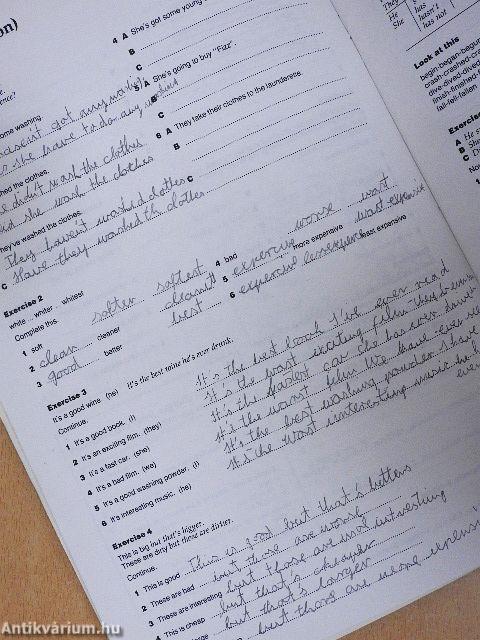 on)
4 A She's got some young
B
C
5 A She's going to buy "Fizz".
B
C
6 A They take their clothes to the launderette.
B
C
some washing.
hasn't got any
she have to do any
washed the clothes.
didn't wash the clothes
she wash the clothes
They've washed the clothes.
They haven't washed clothes
C Have they washed th clothes
Exercise 2
white ... whiter ... whitest
Complete this.
1 soft softer softest
2 clean cleaner
3 good better best
4 bad worse worst
5 more expensive
6 least expensive
Exercise 3
It's a good wine (he) It's the best wine he's ever drunk.
Continue.
1 It's a good book. (I)
2 It's an exciting film. (they)
3 It's a fast car. (she)
4 It's a bad film. (we)
5 It's a good washing powder. (I)
6 It's interesting music. (he)
It's the best book I've ever read
It's the most exciting film
It's the fastest car she has ever
It's the worst film We have ever
It's the best washing powder I have
It's the most interesting music he
Exercise 4
This is big but that's bigger.
These are dirty but these are dirtier.
Continue.
1 This is good This is good but that's better
2 These are bad but those are worse
3 These are interesting but those are more interesting
4 This is cheap but that's cheaper
large but that's larger
but those are more
They
He
She
has
hasn't
has not
Look at this
begin-began-begun
crash-crashed-crashed
dive-dived-dived
finish-finished-finished
fall-fell-fallen
Exercise
A He
B She
C
Antikvárium.hu